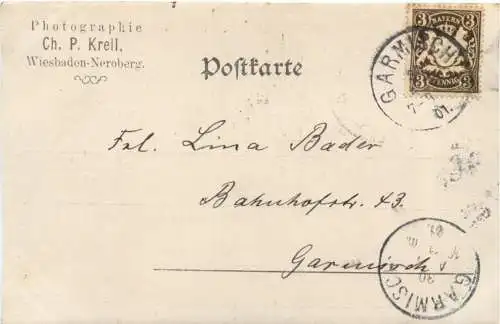 Photographie
Ch. P. Krell.
Wiesbaden-Neroberg.
Postkarte
3 BAYERN 3
3 PFENNIG 3
GARMISCH
7-8
01.
Frl. Lina Bader
Bahnhofstr. 43.
Garmisch
GARMISC
30
01.